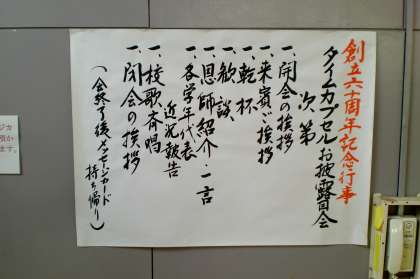 創立六十周年記念行事
タイムカプセルお披露目会
次第
一、開会の挨拶
一、来賓ご挨拶
一、乾杯
一、歓談
一、恩師紹介・一言
一、各学年代表
近況報告
一、校歌斉唱
一、閉会の挨拶
(会終了後メッセージカード
持ち帰り)